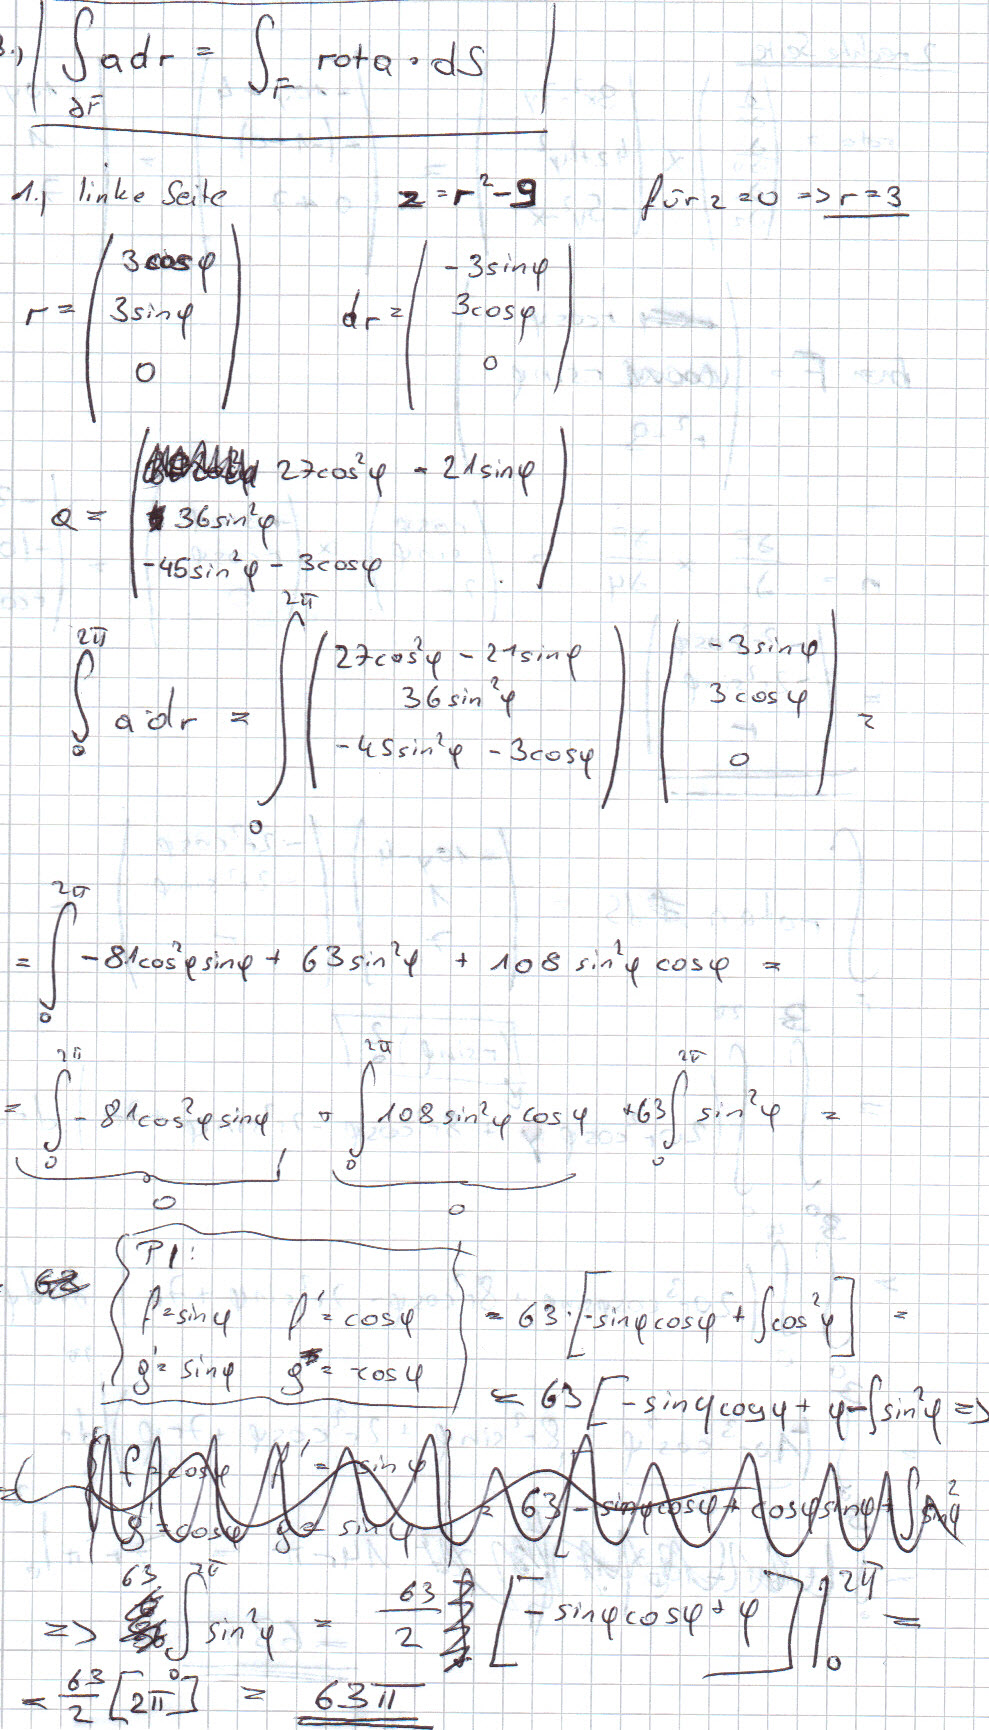 3.) ∫_∂F a dr = ∫_F rot a · dS
1.) linke Seite z = r² - 9 für z = 0 => r = 3
r = (3cosφ, 3sinφ, 0) dr = (-3sinφ, 3cosφ, 0)
a = (27cos²φ - 21sinφ, 36sin²φ, -45sin²φ - 3cosφ)
∫₀^2π a·dr = ∫₀^2π (27cos²φ - 21sinφ, 36sin²φ, -45sin²φ - 3cosφ) (-3sinφ, 3cosφ, 0) =
= ∫₀^2π -81cos²φsinφ + 63sin²φ + 108 sin²φ cosφ =
= ∫₀^2π -81cos²φsinφ + ∫₀^2π 108sin²φ cosφ + 63∫₀^2π sin²φ =
0 0
PI:
f = sinφ f' = cosφ = 63·[-sinφcosφ + ∫cos²φ] =
g' = sinφ g = -cosφ = 63 [-sinφcosφ + φ - ∫sin²φ =>
=> 63 ∫₀^2π sin²φ = 63/2 [-sinφcosφ + φ] |₀^2π =
= 63/2 [2π - 0] = 63π